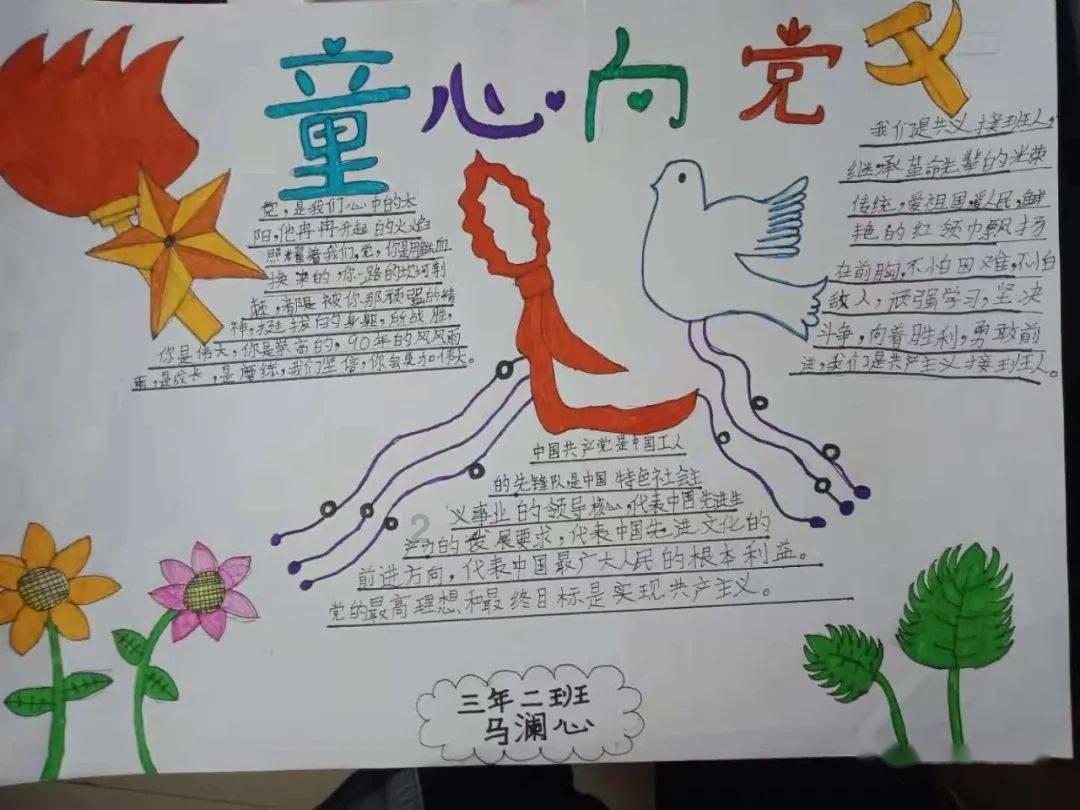 童心向党
党,是我们心中的太
阳,他冉冉升起的火焰
照耀着我们,党,你是用鲜血
换来的,你一路的坎坷荆
棘,都是被你那顽强的精
神,挺拔的身躯,所战胜,
你是伟大,你是崇高的,90年的风风雨
雨,是成长,是磨练,我们坚信,你会更加伟大。
我们是共义接班人,
继承革命先辈的光荣
传统,爱祖国爱人民,鲜
艳的红领巾飘扬
在前胸,不怕困难,不怕
敌人,顽强学习,坚决
斗争,向着胜利,勇敢前
进,我们是共产主义接班人。
中国共产党是中国工人
的先锋队是中国特色社会主
义事业的领导核心,代表中国先进生
产力的发展要求,代表中国先进文化的
前进方向,代表中国最广大人民的根本利益。
党的最高理想和最终目标是实现共产主义。
三年二班
马澜心